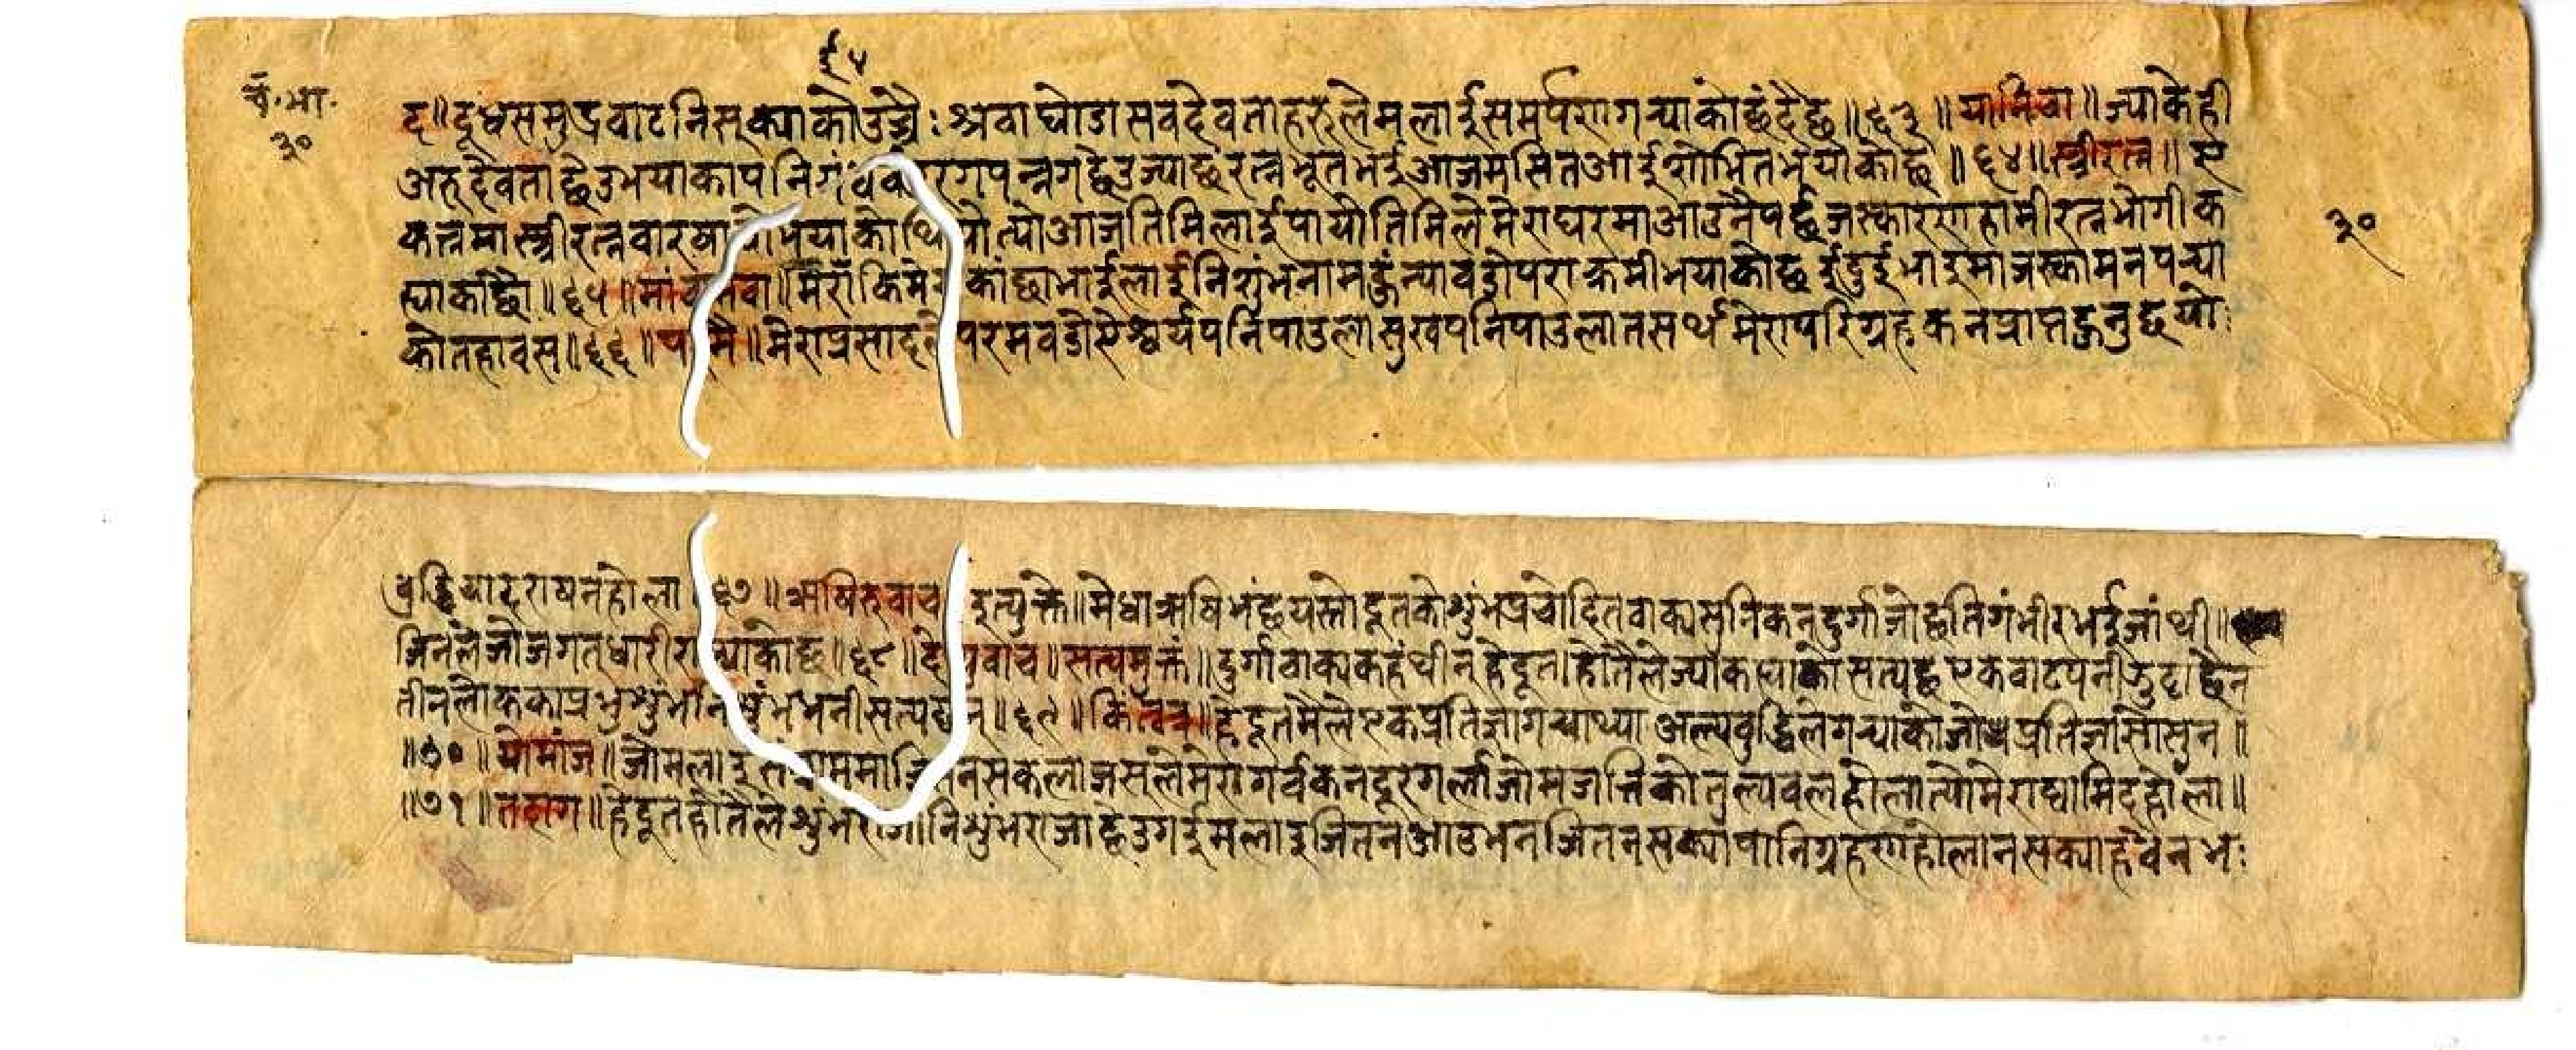 ९५
चं.भा.
३०
द॥ दूधसमुद्रवाटनिस्क्याकोउच्चैः श्रवाघोडासवदेवताहरुलेमलाईसमर्पणगर्‍याकोछंदैछ॥६३॥ यानिचा॥ ज्याकेही
अरुदेवताछेउभयाकापनिगंधर्व उरगपन्नगछेउज्याछरत्नभूतभईआजमसितआईशोभितभयाकोछ॥६४॥ स्त्रीरत्न॥ ए
कत्नमास्त्रीरत्न भयाकोथियोत्योआजतिमिलाईपायौतिमिलेमेराघरमाआउनैपर्छजस्कारणहामीरत्नभोगीक
३०
ह्याकाछौ॥६५॥ मां वा॥ मेराकि कांछाभाईलाईनिशुंभनामहुंन्यावडोपराक्रमीभयाकोछ मनपर्‍या
कोतहावस॥६६॥ प मै॥ मेराप्रसादले परमवडोऐश्वर्यपनिपाउलासुखपनिपाउलातसर्थमेरापरिग्रहकनप्राप्तहुनुछयो
वुद्धि होला ६७॥ ऋषिरुवाच इत्युक्ते॥ मेधाऋषिभंछयस्तोदूतकोशुंभप्रचोदितवाक्यसुनिकनदुर्गाजोछतिगंभीरभईजांथी॥
जिनलेजोजगत्धारीरा न्याकोछ॥६८॥ देव्युवाच॥ सत्यमुक्तं॥ दुर्गावाक्यकहंथीन्हेदूत।होतैलेज्याकह्याकोसत्यछएकवाटपनी
तीनलोकका प्रभुशुंभनिशुंभभनीसत्यछन्॥६९॥ किंत्वत्र॥ हेदूतमैलेएकप्रतिज्ञागर्‍याथ्याअल्पवुद्धिलेगर्‍याको प्रतिज्ञासोसुन॥
॥७०॥ योमांज॥ जोमलाइसंग्राममाजितनसकलाजसलेमेरागर्वकनदूरगर्लाजोमजत्तिकोतुल्यवलहोलात्योमेराषामिदहोला॥
॥७१॥ तदाग॥ हेदूतहोतैलेशुंभराजानिशुंभराजाछेउगईमलाइजितनआउभनजितनसक्यापानिग्रहणहोलानसक्याहवैनभ